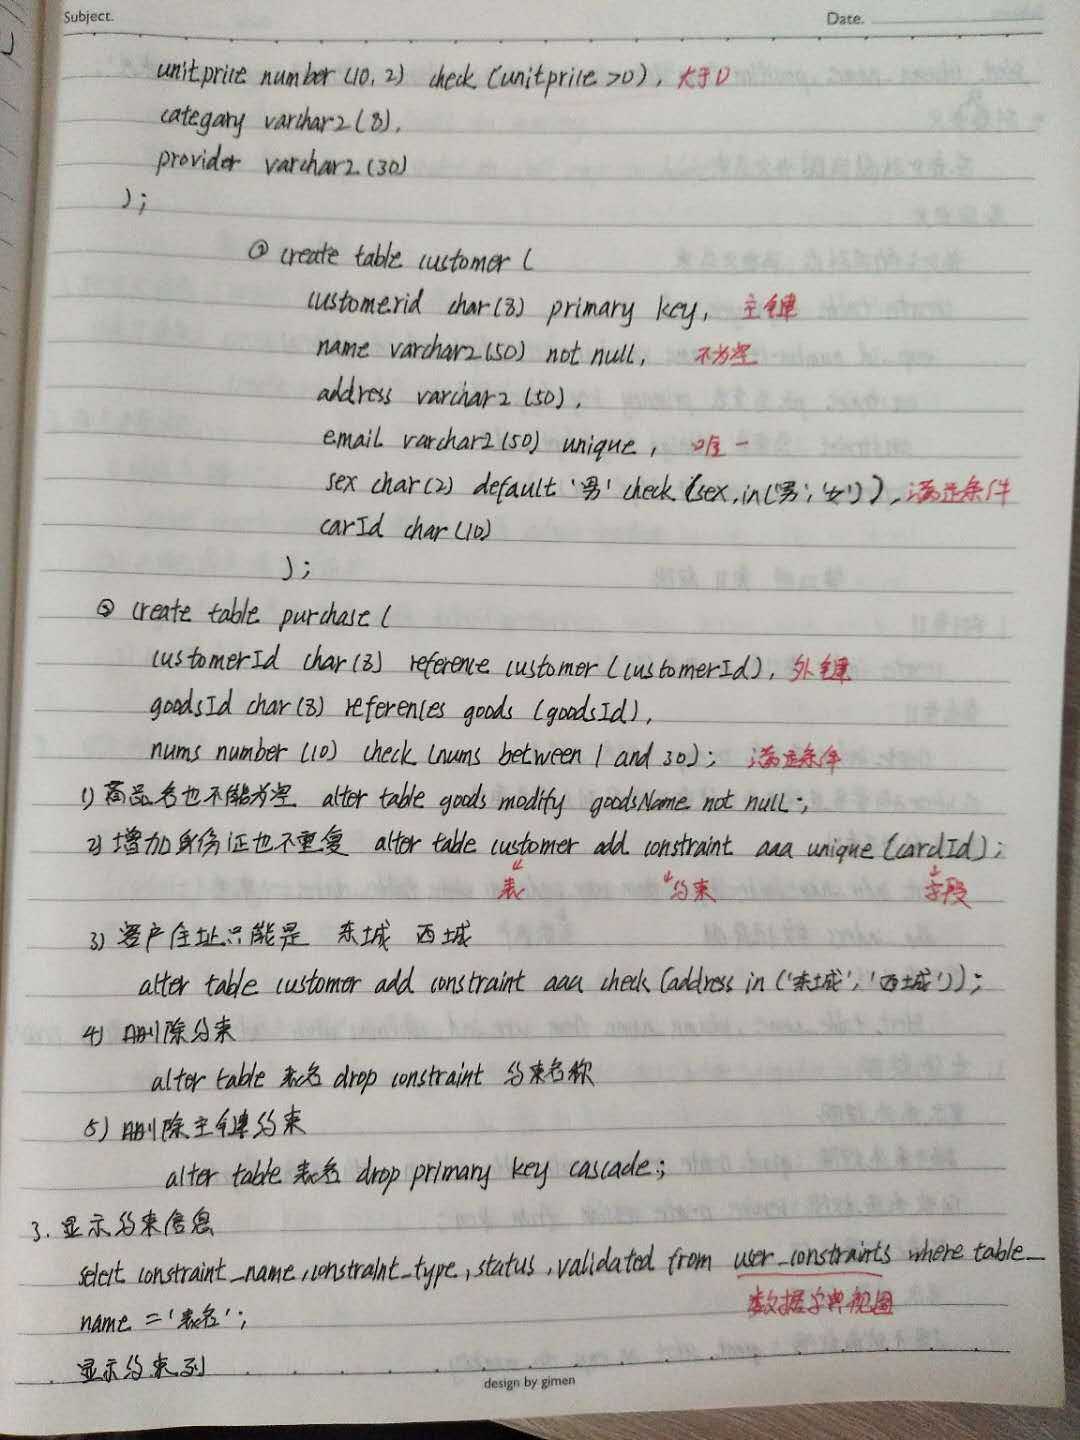 Subject.
Date.
unitprice number (10,2) check (unitprice >0), 大于0
categary varchar2 (8),
provider varchar2 (30)
);
create table customer (
customerid char(8) primary key, 主键
name varchar2 (50) not null, 不为空
address varchar2 (50),
email varchar2 (50) unique, 唯一
sex char(2) default '男' check (sex, in('男','女')), 满足条件
carId char (10)
);
③ create table purchase (
customerId char (8) reference customer (customerId), 外键
goodsId char (8) references goods (goodsId),
nums number (10) check (nums between 1 and 30); 满足条件
1) 商品名也不能为空 alter table goods modify goodsName not null;
2) 增加身份证也不重复 alter table customer add constraint aaa unique (cardId);
表 约束 字段
3) 客户住址只能是 东城 西城
alter table customer add constraint aaa check (address in ('东城','西城'));
4) 删除约束
alter table 表名 drop constraint 约束名称
5) 删除主键约束
alter table 表名 drop primary key cascade;
3. 显示约束信息
select constraint_name, constraint_type, status, validated from user_constraints where table_
数据字典视图
name = '表名';
显示约束列
design by gimen